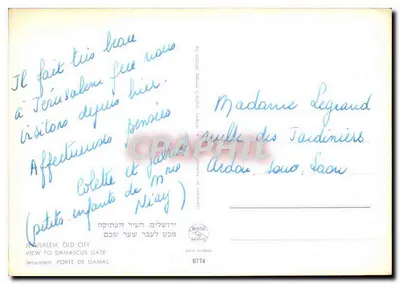 Il fait très beau
à Jérusalem que nous
visitons depuis hier.
Affectueuses pensées
Colette et
(petits enfants de Mme
Niay)
Madame Legrand
des Jardiniers
Ardon, sous, Laon
ירושלים, העיר העתיקה
מבט לעבר שער שכם
JERUSALEM, OLD CITY
VIEW TO DAMASCUS GATE
Jerusalem, PORTE DE DAMAS
9774